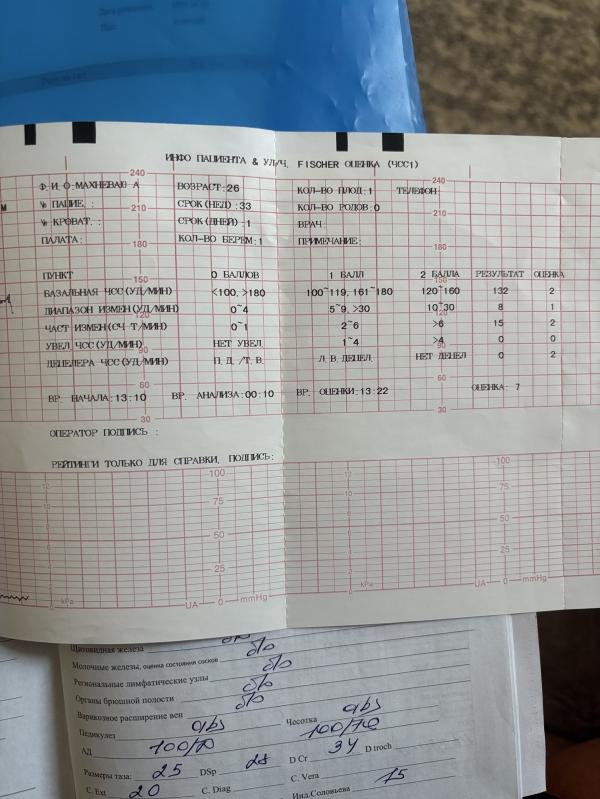 ИНФО ПАЦИЕНТА & УЛ/Ч. FISCHER ОЦЕНКА (ЧСС1)
240 240
Ф. И. О: МАХНЕВАЮ А ВОЗРАСТ: 26 КОЛ-ВО ПЛОД: 1 ТЕЛЕФОН:
№ ПАЦИЕ. : СРОК (НЕД) : 33 КОЛ-ВО РОДОВ: 0
210 210
№ КРОВАТ. : СРОК (ДНЕЙ) : 1 ВРАЧ:
ПАЛАТА: КОЛ-ВО БЕРЕМ: 1 ПРИМЕЧАНИЕ:
180 180
ПУНКТ 0 БАЛЛОВ 1 БАЛЛ 2 БАЛЛА РЕЗУЛЬТАТ ОЦЕНКА
150 150
БАЗАЛЬНАЯ ЧСС (УД/МИН) <100, >180 100~119, 161~180 120~160 132 2
ДИАПАЗОН ИЗМЕН (УД/МИН) 0~4 5~9, >30 10~30 8 1
120 120
ЧАСТ ИЗМЕН (СЧ Т/МИН) 0~1 2~6 >6 15 2
УВЕЛ. ЧСС (УД/МИН) НЕТ УВЕЛ. 1~4 >4 0 0
90 90
ДЕЦЕЛЕРА ЧСС (УД/МИН) П. Д. /Т. В. Л. В. ДЕЦЕЛ. НЕТ ДЕЦЕЛ 0 2
60 60
ВР. НАЧАЛА: 13:10 ВР. АНАЛИЗА: 00:10 ВР. ОЦЕНКИ: 13:22 ОЦЕНКА: 7
30 30
ОПЕРАТОР ПОДПИСЬ :
РЕЙТИНГИ ТОЛЬКО ДЛЯ СПРАВКИ, ПОДПИСЬ:
100 100
75 75
50 50
25 25
kPa UA 0 mmHg kPa UA 0 mmHg
Щитовидная железа б/о
Молочные железы, оценка состояния сосков б/о
Региональные лимфатические узлы б/о
Органы брюшной полости б/о
Варикозное расширение вен abs
Педикулез abs Чесотка abs
АД 100/70 100/70
Размеры таза: 25 DSp 28 D Cr 34 D troch
C. Ext 20 C. Diag C. Vera 15
Инд.Соловьева